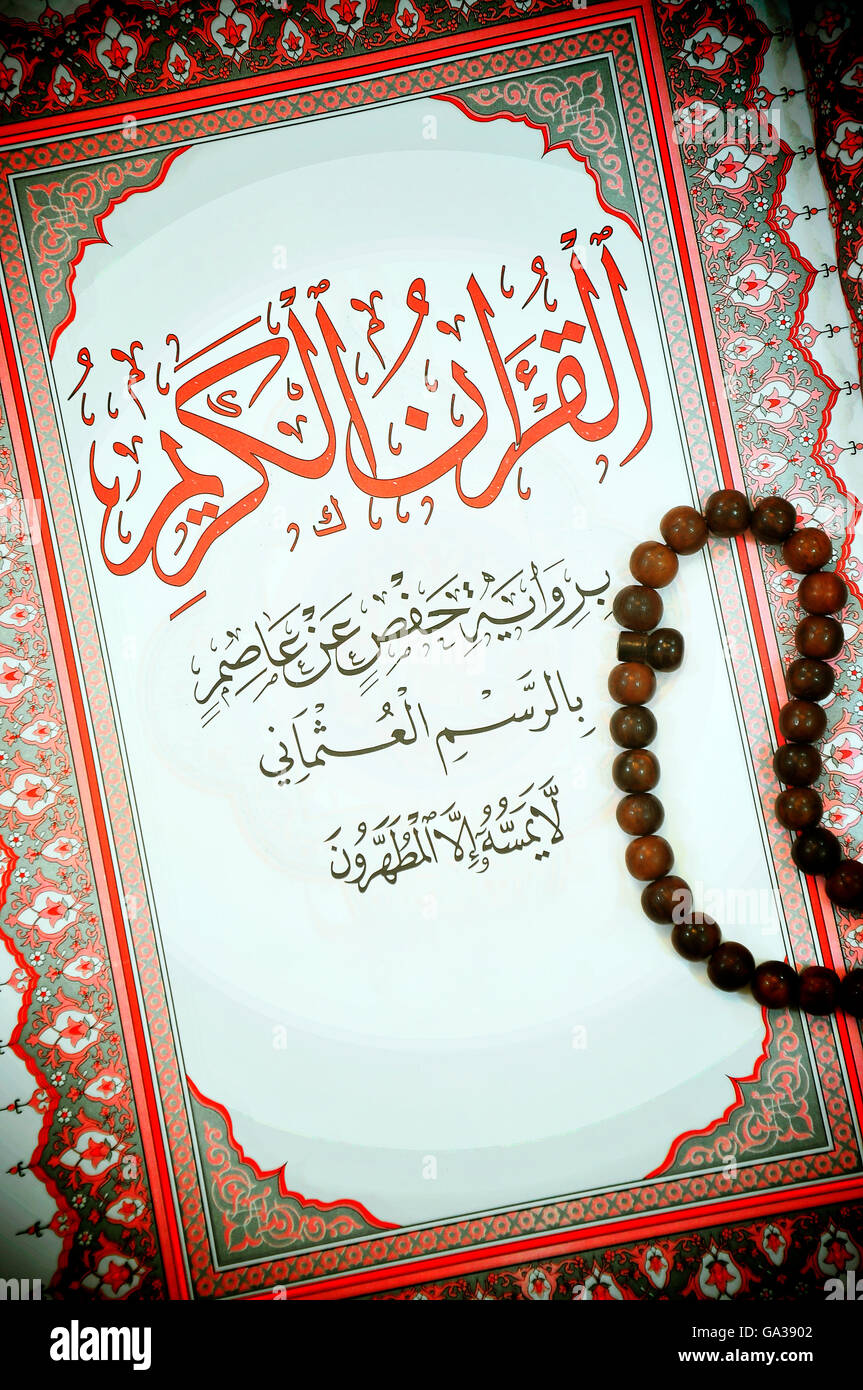 القرءان الكريم
بِرِوَايَةِ حَفْصٍ عَنْ عَاصِمٍ
بِالرَّسْمِ الْعُثْمَانِي
لَّا يَمَسُّهُۥٓ إِلَّا ٱلْمُطَهَّرُونَ
alamy
alamy
Image ID: GA3902
www.alamy.com